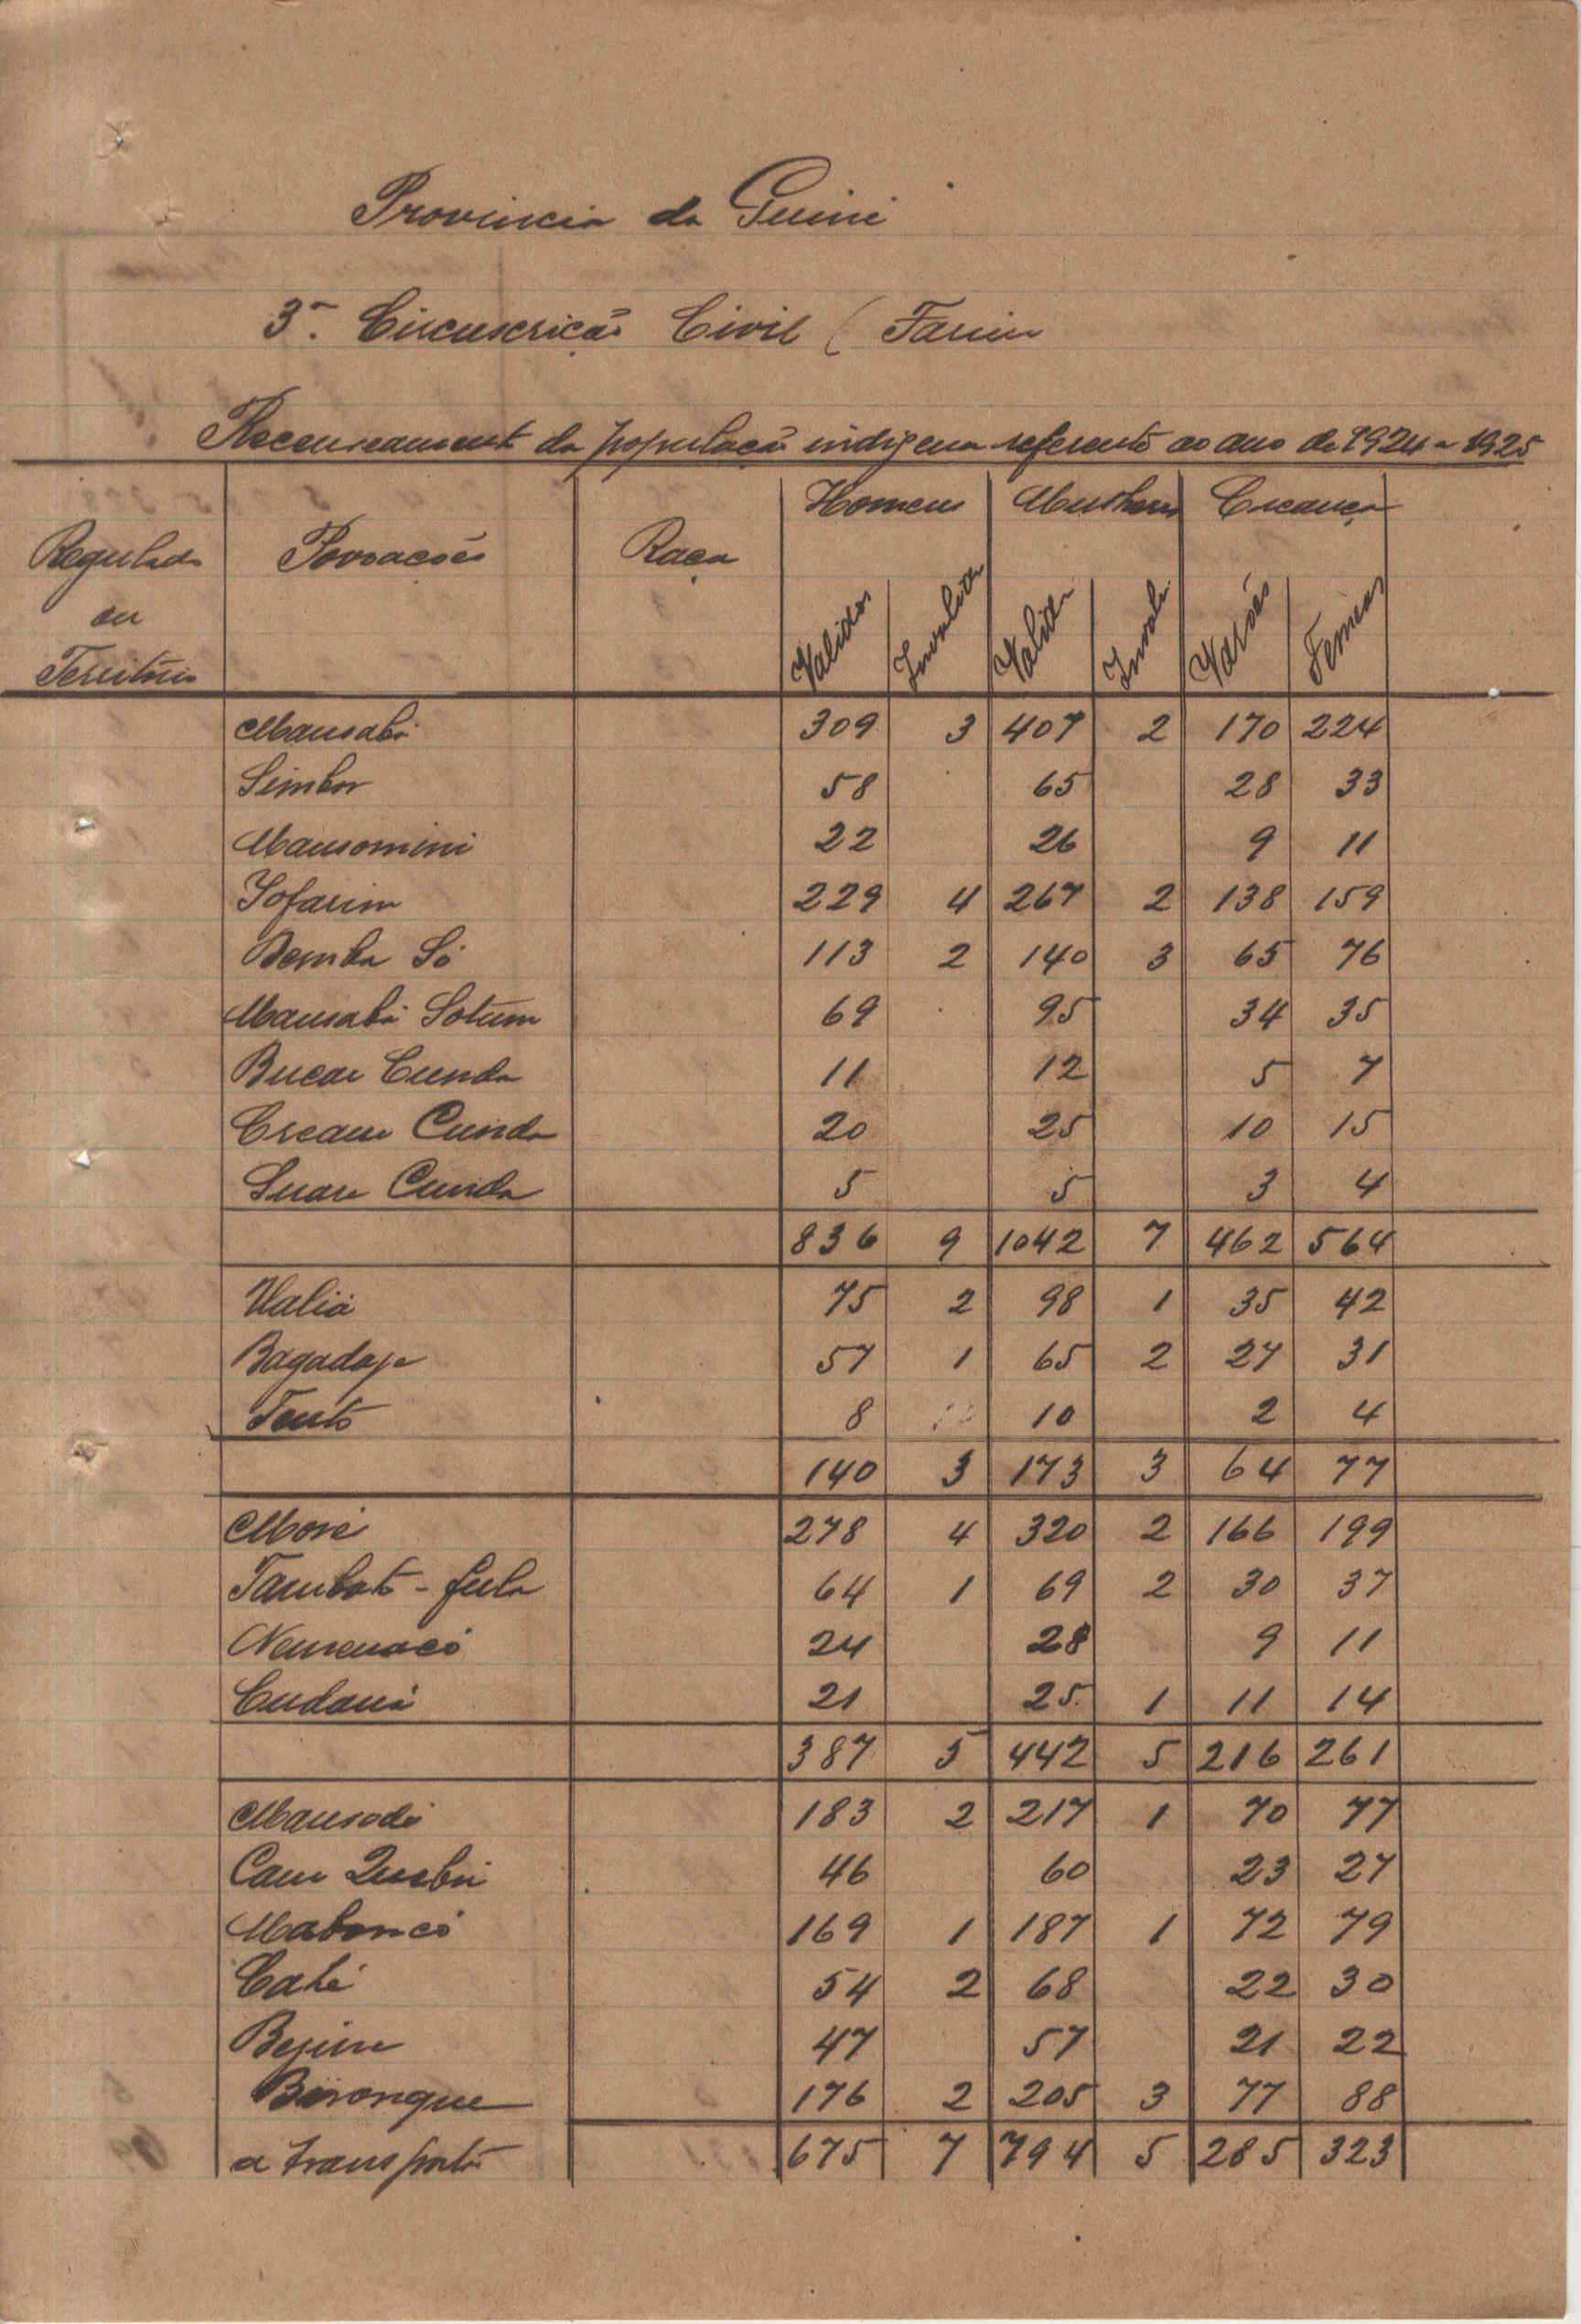 Provincia da Guiné
3ª. Circuscrição Civil ( Farim
Recenseamento da população indigena referente ao ano de 1924 a 1925
Homens Mulheres Creança
Regulado Povoacões Raça
ou
Territorio
Validos Invalido Valida Invali Varões Femeas
Mansabá 309 3 407 2 170 224
Simbor 58 65 28 33
Mansomini 22 26 9 11
Jofarim 229 4 267 2 138 159
Bemba Só 113 2 140 3 65 76
Mansabá Sotum 69 95 34 35
Bucar Cunda 11 12 5 7
Cunda 20 25 10 15
Suare Cunda 5 5 3 4
836 9 1042 7 462 564
Ualiá 75 2 98 1 35 42
Bagadaje 57 1 65 2 27 31
Tento 8 10 2 4
140 3 173 3 64 77
Moré 278 4 320 2 166 199
Tambato - fula 64 1 69 2 30 37
24 28 9 11
Cudaná 21 25 1 11 14
387 5 442 5 216 261
Mansodé 183 2 217 1 70 77
Cam Quebu 46 60 23 27
Maboncó 169 1 187 1 72 79
54 2 68 22 30
47 57 21 22
Bironque 176 2 205 3 77 88
a transporte 675 7 794 5 285 323